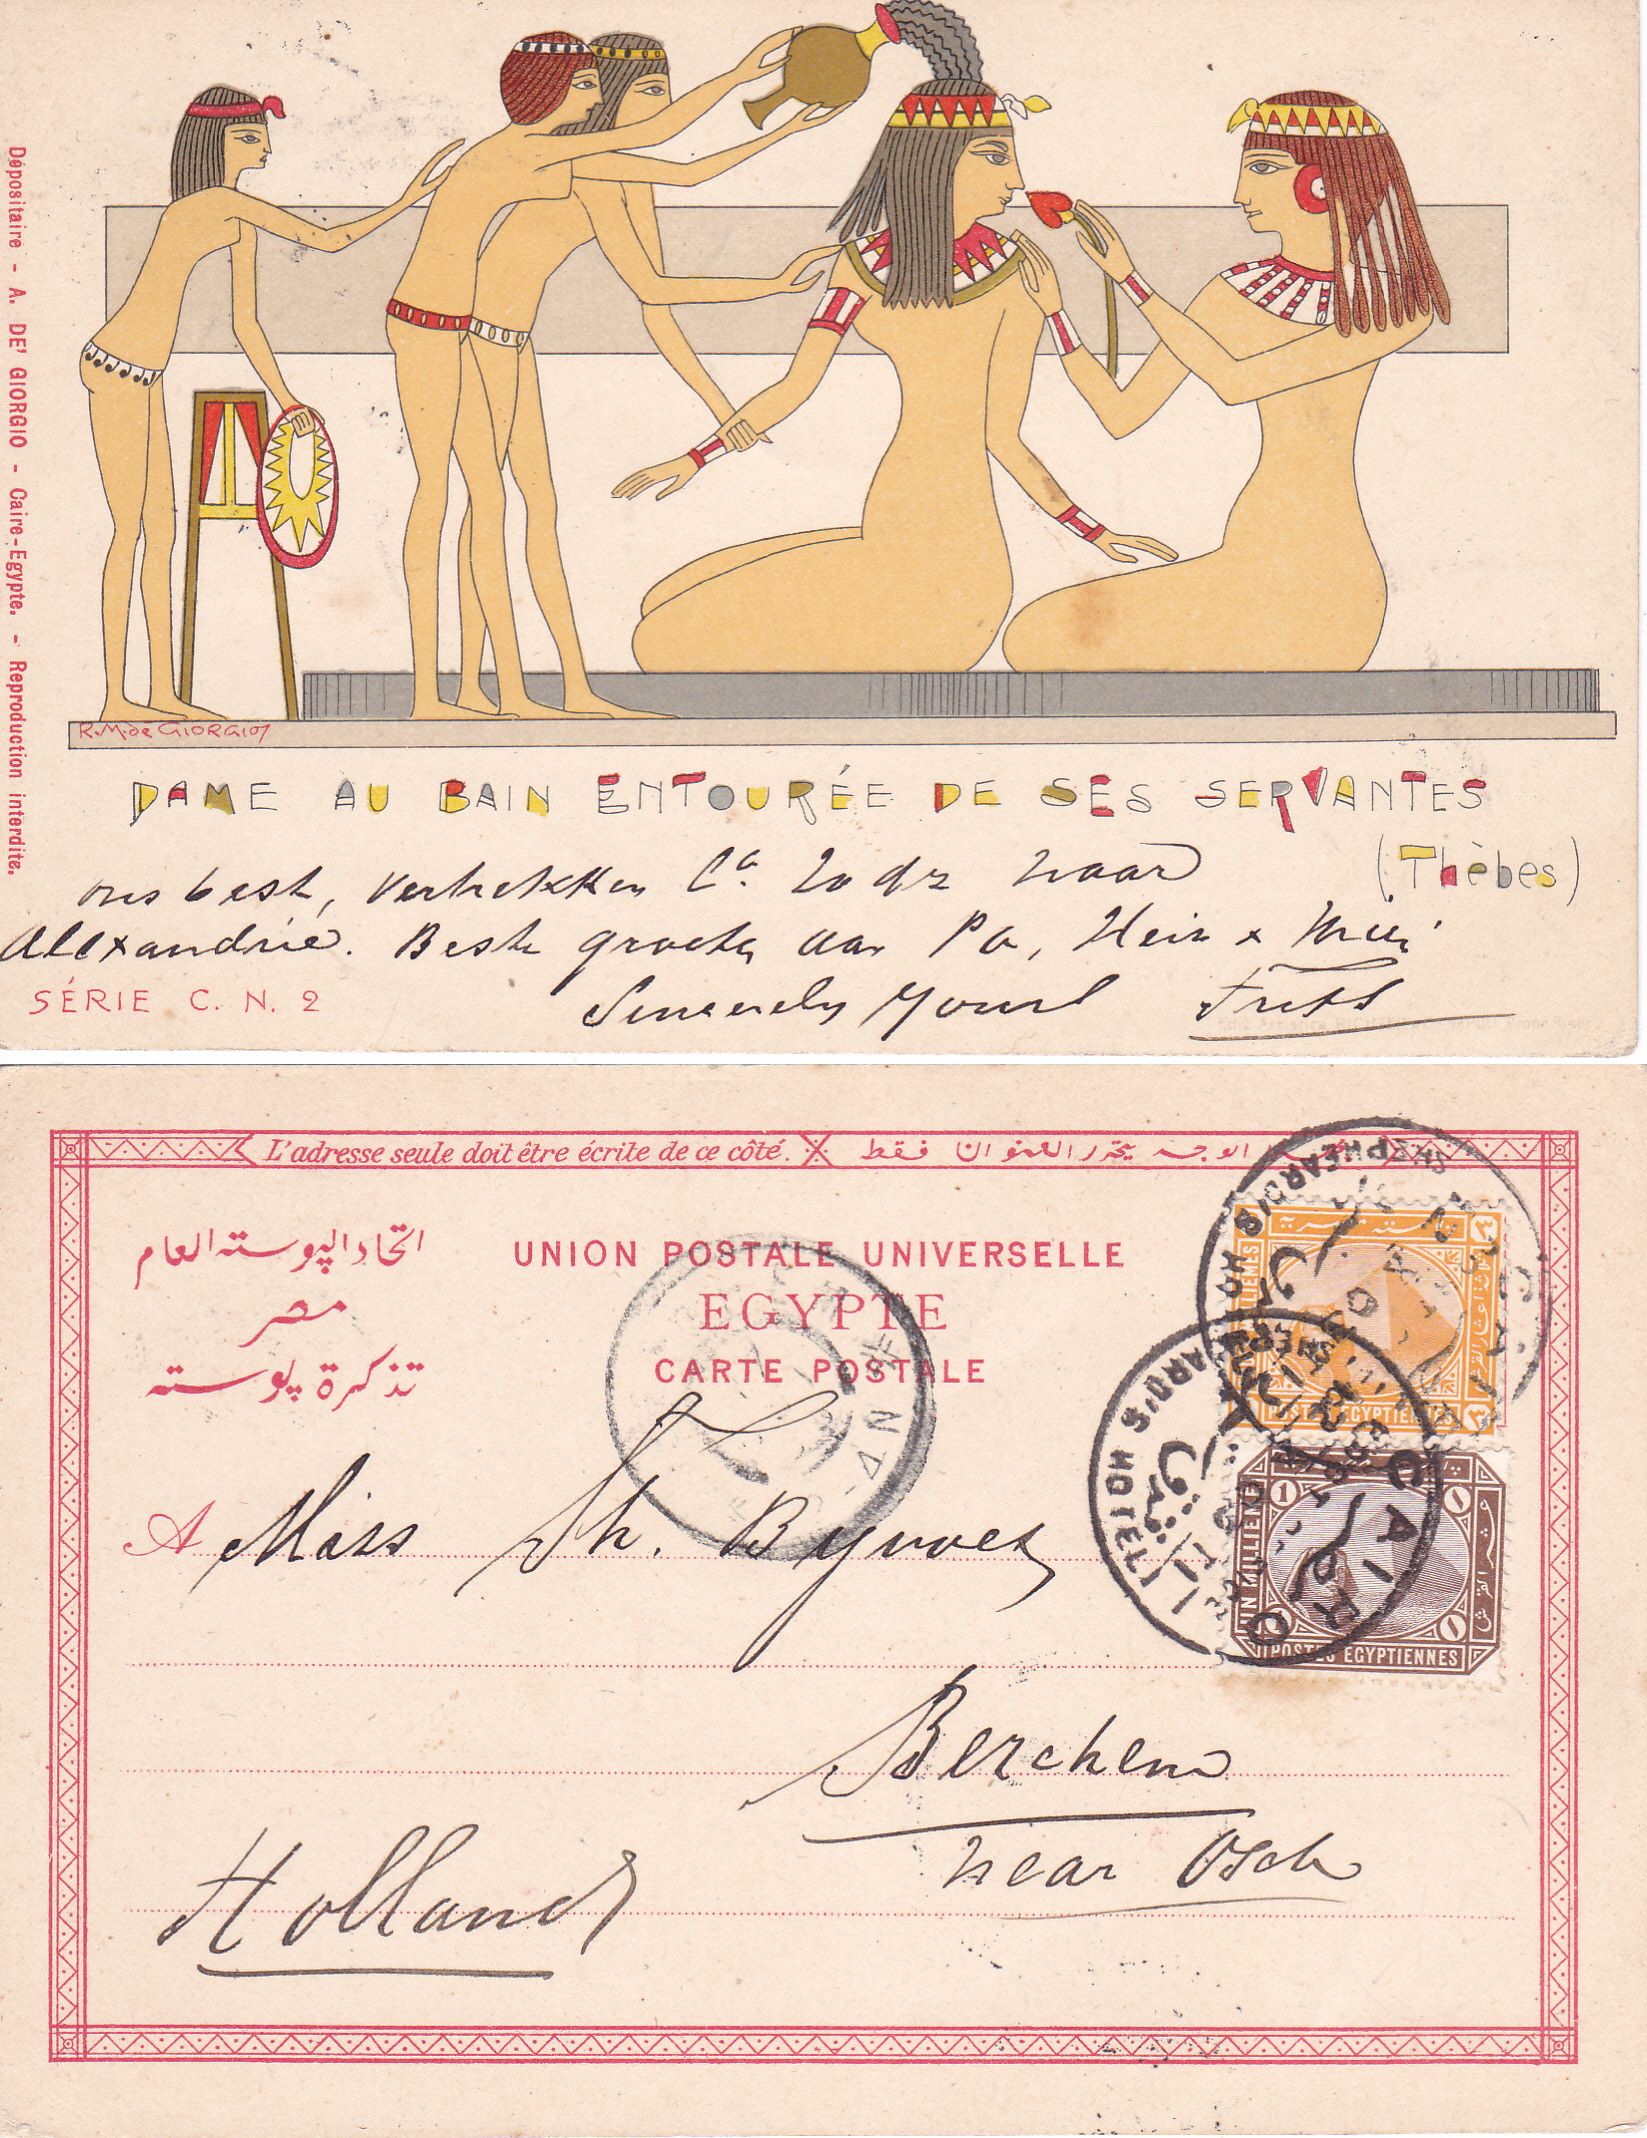 Dépositaire - A. DE' GIORGIO - Caire-Egypte. - Reproduction interdite.
R.M. de GIORGIO
DAME AU BAIN ENTOURÉE DE SES SERVANTES
(Thèbes)
ons best, vertrekken Ca. 20 dz naar
Alexandrië. Beste groeten aan Pa, Hein &
SÉRIE C. N. 2
Sincerely Yours Frits
L'adresse seule doit être écrite de ce côté.
الوجه يحرر العنوان فقط
اتحاد البوسته العام
مصر
تذكرة بوسته
UNION POSTALE UNIVERSELLE
EGYPTE
CARTE POSTALE
SHEPHEARD'S HOTEL
POSTES EGYPTIENNES
SHEPHEARD'S HOTEL
CAIRO
UN MILLIEME
1
POSTES EGYPTIENNES
A Miss Th. Byvoet
Berchem
near Osch
Holland